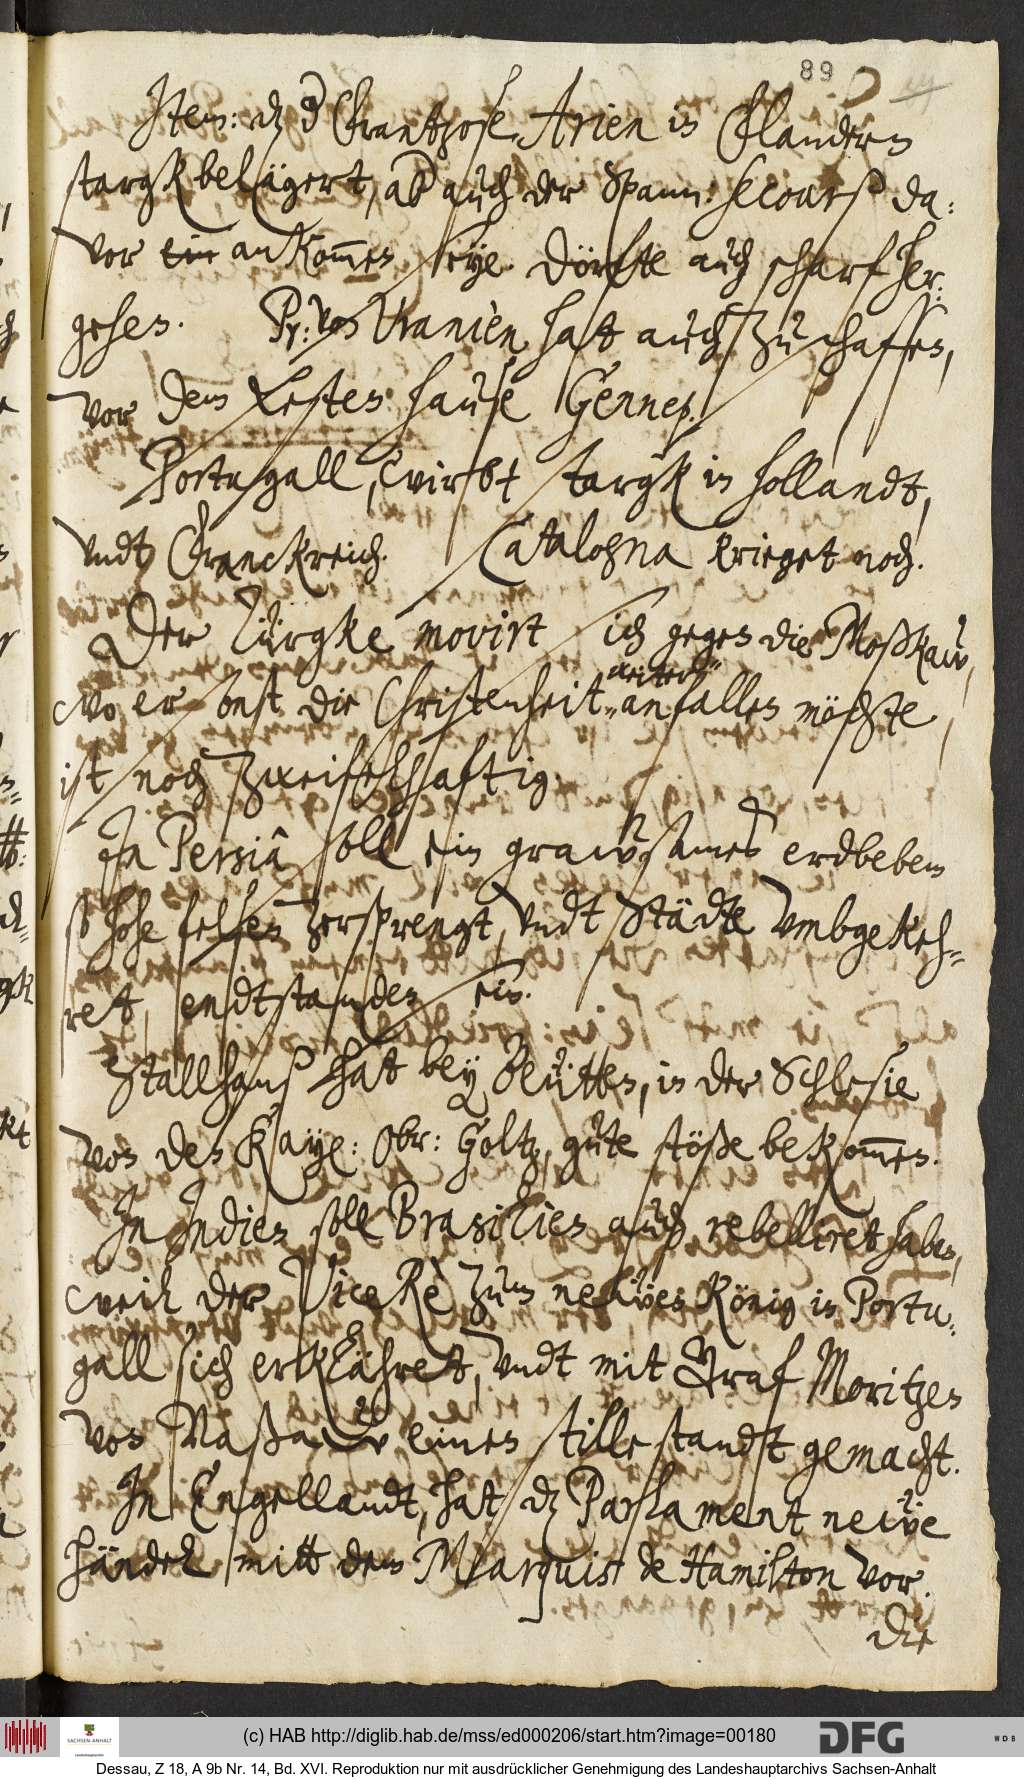 89
Item: dz der Frantzose, Arien in Flandern
starck belägert, aber auch der Spann: secourß da-
vor ein ankommen seye. Dörfte auch scharf her-
gehen. Pr: von Uranien hatt auch zu schaffen,
vor dem Vesten hause Gennep.
Portugall, wirbt starck in Hollandt,
undt Franckreich. Catalogna krieget noch.
Der Türgke movirt sich gegen die Moßkaw,
wo er sonst die Christenheit anfallen möchte
weiter
ist noch zweifelhaftig.
In Persiâ soll ein grawsames erdbeben
so hohe felsen zersprengt, undt Städte umbgekeh-
ret, endtstanden sein.
Stallhanß hat bey Beütten, in der Schlesie
von des Kaye: Obr: Goltz, gute stöße bekommen.
In Indien soll Brasilien auch rebelliret haben,
weil der Vice Rè zum newen König in Portu-
gall sich erklähret, undt mit Graf Moritzen
von Naßaw einen stillestandt gemacht.
In Engellandt, hat dz Parlament newe
händel mitt dem Marquis de Hamilton vor.
Die
(c) HAB http://diglib.hab.de/mss/ed000206/start.htm?image=00180
SACHSEN-ANHALT
Landeshauptarchiv
DFG
WDB
Dessau, Z 18, A 9b Nr. 14, Bd. XVI. Reproduktion nur mit ausdrücklicher Genehmigung des Landeshauptarchivs Sachsen-Anhalt